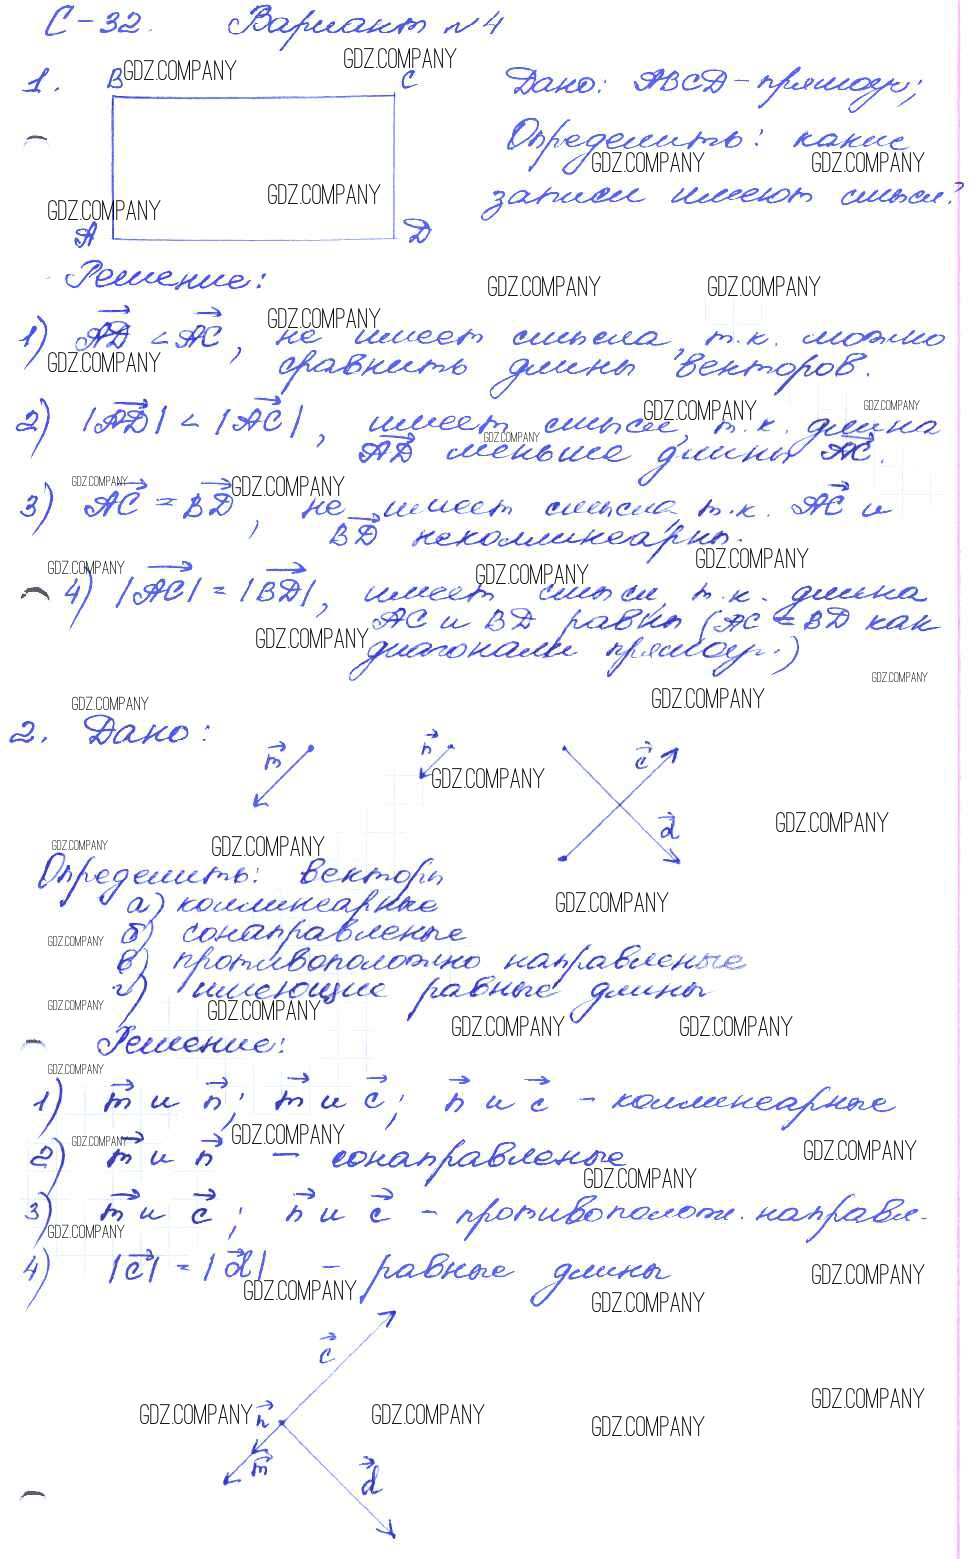 С-32. Вариант №4
GDZ.COMPANY GDZ.COMPANY
1. B C Дано: ABCD - прямоуг;
Определить: какие
GDZ.COMPANY GDZ.COMPANY
записи имеют смысл?
GDZ.COMPANY GDZ.COMPANY
A D
Решение:
GDZ.COMPANY GDZ.COMPANY
GDZ.COMPANY
1) AD < AC, не имеет смысла, т.к. можно
GDZ.COMPANY
сравнить длины векторов.
2) |AD| < |AC|, имеет смысл, т.к. длина
GDZ.COMPANY GDZ.COMPANY
GDZ.COMPANY
AD меньше длины AC.
GDZ.COMPANY GDZ.COMPANY
3) AC = BD, не имеет смысла, т.к. AC и
BD неколлинеарны.
GDZ.COMPANY GDZ.COMPANY GDZ.COMPANY
4) |AC| = |BD|, имеет смысл, т.к. длина
AC и BD равны (AC = BD как
GDZ.COMPANY
диагонали прямоуг.)
GDZ.COMPANY
GDZ.COMPANY GDZ.COMPANY
2. Дано:
m n c
GDZ.COMPANY
d
GDZ.COMPANY
GDZ.COMPANY GDZ.COMPANY
Определить: векторы
а) коллинеарные
GDZ.COMPANY
б) сонаправленые
GDZ.COMPANY
в) противоположно направленые
г) имеющие равные длины
GDZ.COMPANY GDZ.COMPANY
GDZ.COMPANY GDZ.COMPANY
Решение:
GDZ.COMPANY
1) m и n; m и c; n и c - коллинеарные
GDZ.COMPANY GDZ.COMPANY
GDZ.COMPANY
2) m и n - сонаправленые
GDZ.COMPANY
3) m и c; n и c - противополож. направл.
GDZ.COMPANY
4) |c| = |d| - равные длины
GDZ.COMPANY
GDZ.COMPANY GDZ.COMPANY
c
GDZ.COMPANY
GDZ.COMPANY n GDZ.COMPANY GDZ.COMPANY
m d